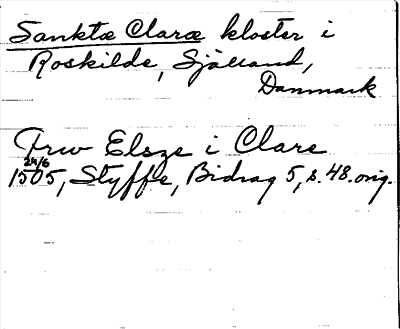 Sanktæ Claræ kloster i
Roskilde, Själland,
Danmark
Frw Elsze i Clare
24/6
1505, Styffe, Bidrag 5, s. 48. orig.